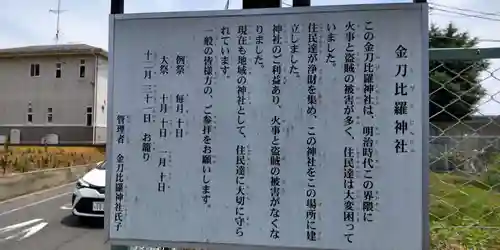 金刀比羅神社
この金刀比羅神社は、明治時代この界隈に
火事と盗賊の被害が多く、住民達は大変困って
いました。
住民達が浄財を集め、この神社をこの場所に建
立しました。
神社のご利益あり、火事と盗賊の被害がなくな
りました。
現在も地域の神社として、住民達に大切に守ら
れています。
一般の皆様方の、ご参拝をお願いします。
例祭　毎月十日
大祭　十月十日　一月十日
十二月三十一日　お籠り
管理者　金刀比羅神社氏子